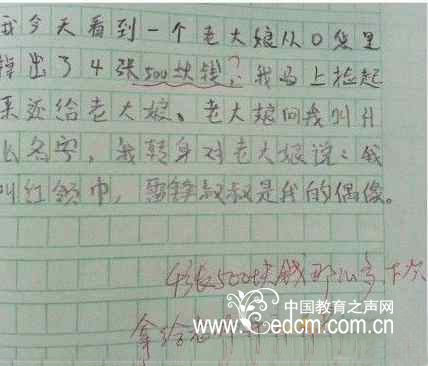 我今天看到一个老大娘从口袋里
掉出了4张500块钱,我马上捡起
来还给老大娘、老大娘问我叫什
么名字,我转身对老大娘说:我
叫红领巾,雷锋叔叔是我的偶像。
4张500块钱那么多下次
拿给老
中国教育之声网
www.edcm.com.cn